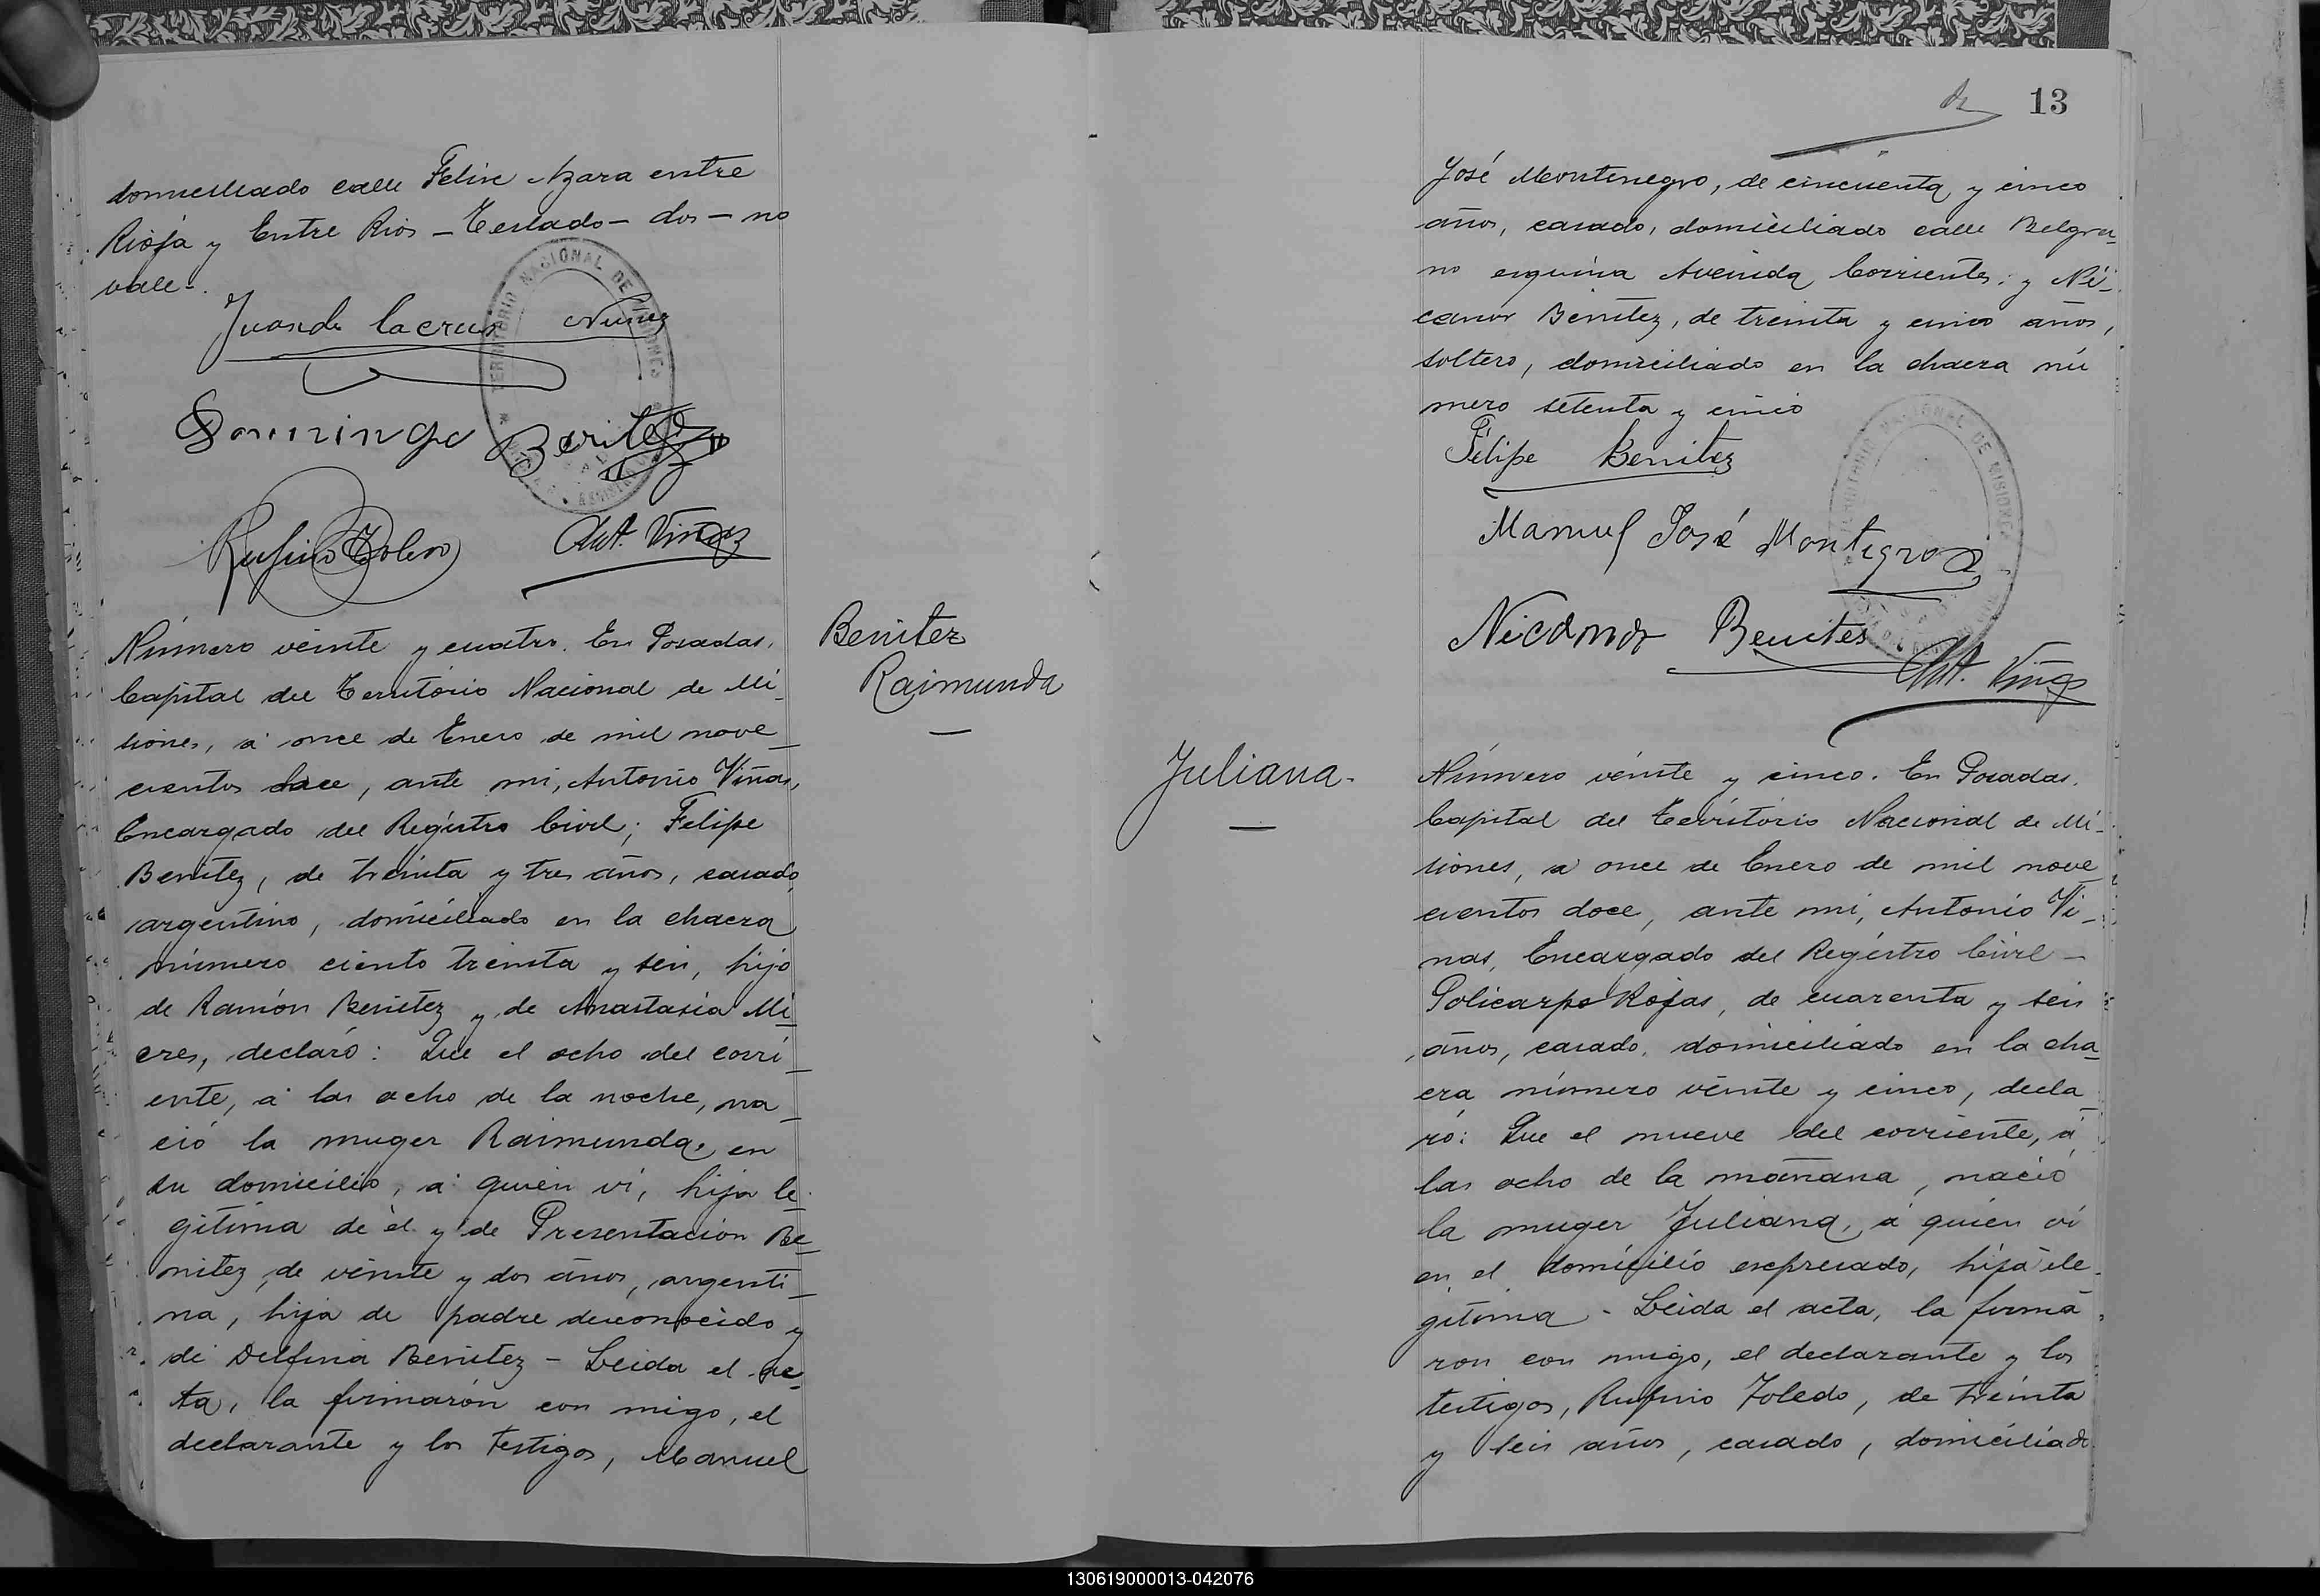 domiciliado calle Felix Azara entre
Rioja y Entre Rios - Testado - dos - no
vale-.
Juan de la cruz Nuñez
TERRITORIO NACIONAL DE MISIONES
Domingo Benitez
Rufino Toledo
Ant. Viñas
Número veinte y cuatro. En Posadas,
Capital del Territorio Nacional de Mi_
siones, á once de Enero de mil nove_
cientos doce, ante mi, Antonio Viñas,
Encargado del Registro Civil; Felipe
Benitez, de treinta y tres años, casado
argentino, domiciliado en la chacra
número ciento treinta y seis, hijo
de Ramón Benitez y de Anastasia Mi_
eres, declaró: Que el ocho del corri_
ente, á las ocho de la noche, na_
ció la muger Raimunda, en
su domicilio, á quien ví, hija le_
gitima de él y de Presentación Be_
nitez, de veinte y dos años, argenti_
na, hija de padre desconocido y
de Delfina Benitez - Leida el ac_
ta, la firmarón con migo, el
declarante y los testigos, Manuel
Benitez
Raimunda
13
José Montenegro, de cincuenta y cinco
años, casado, domiciliado calle Belgra_
no esquina Avenida Corrientes; y Ni_
canor Benitez, de treinta y cinco años,
soltero, domiciliado en la chacra nú
mero setenta y cinco
Felipe Benitez
TERRITORIO NACIONAL DE MISIONES
Manuel José Montegro
Nicanor Benites
Ant. Viñas
Juliana-
Número veinte y cinco. En Posadas,
Capital del Territorio Nacional de Mi_
siones, á once de Enero de mil nove_
cientos doce, ante mi, Antonio Vi_
ñas, Encargado del Registro Civil -
Policarpo Rojas, de cuarenta y seis
años, casado, domiciliado en la cha_
cra número veinte y cinco, decla_
ró: Que el nueve del corriente, á
las ocho de la mañana, nació
la muger Juliana, á quien ví
en el domicilio expresado, hija ile_
gitima - Leida el acta, la firma_
ron con migo, el declarante y los
testigos, Rufino Toledo, de treinta
y seis años, casado, domiciliado
130619000013-042076